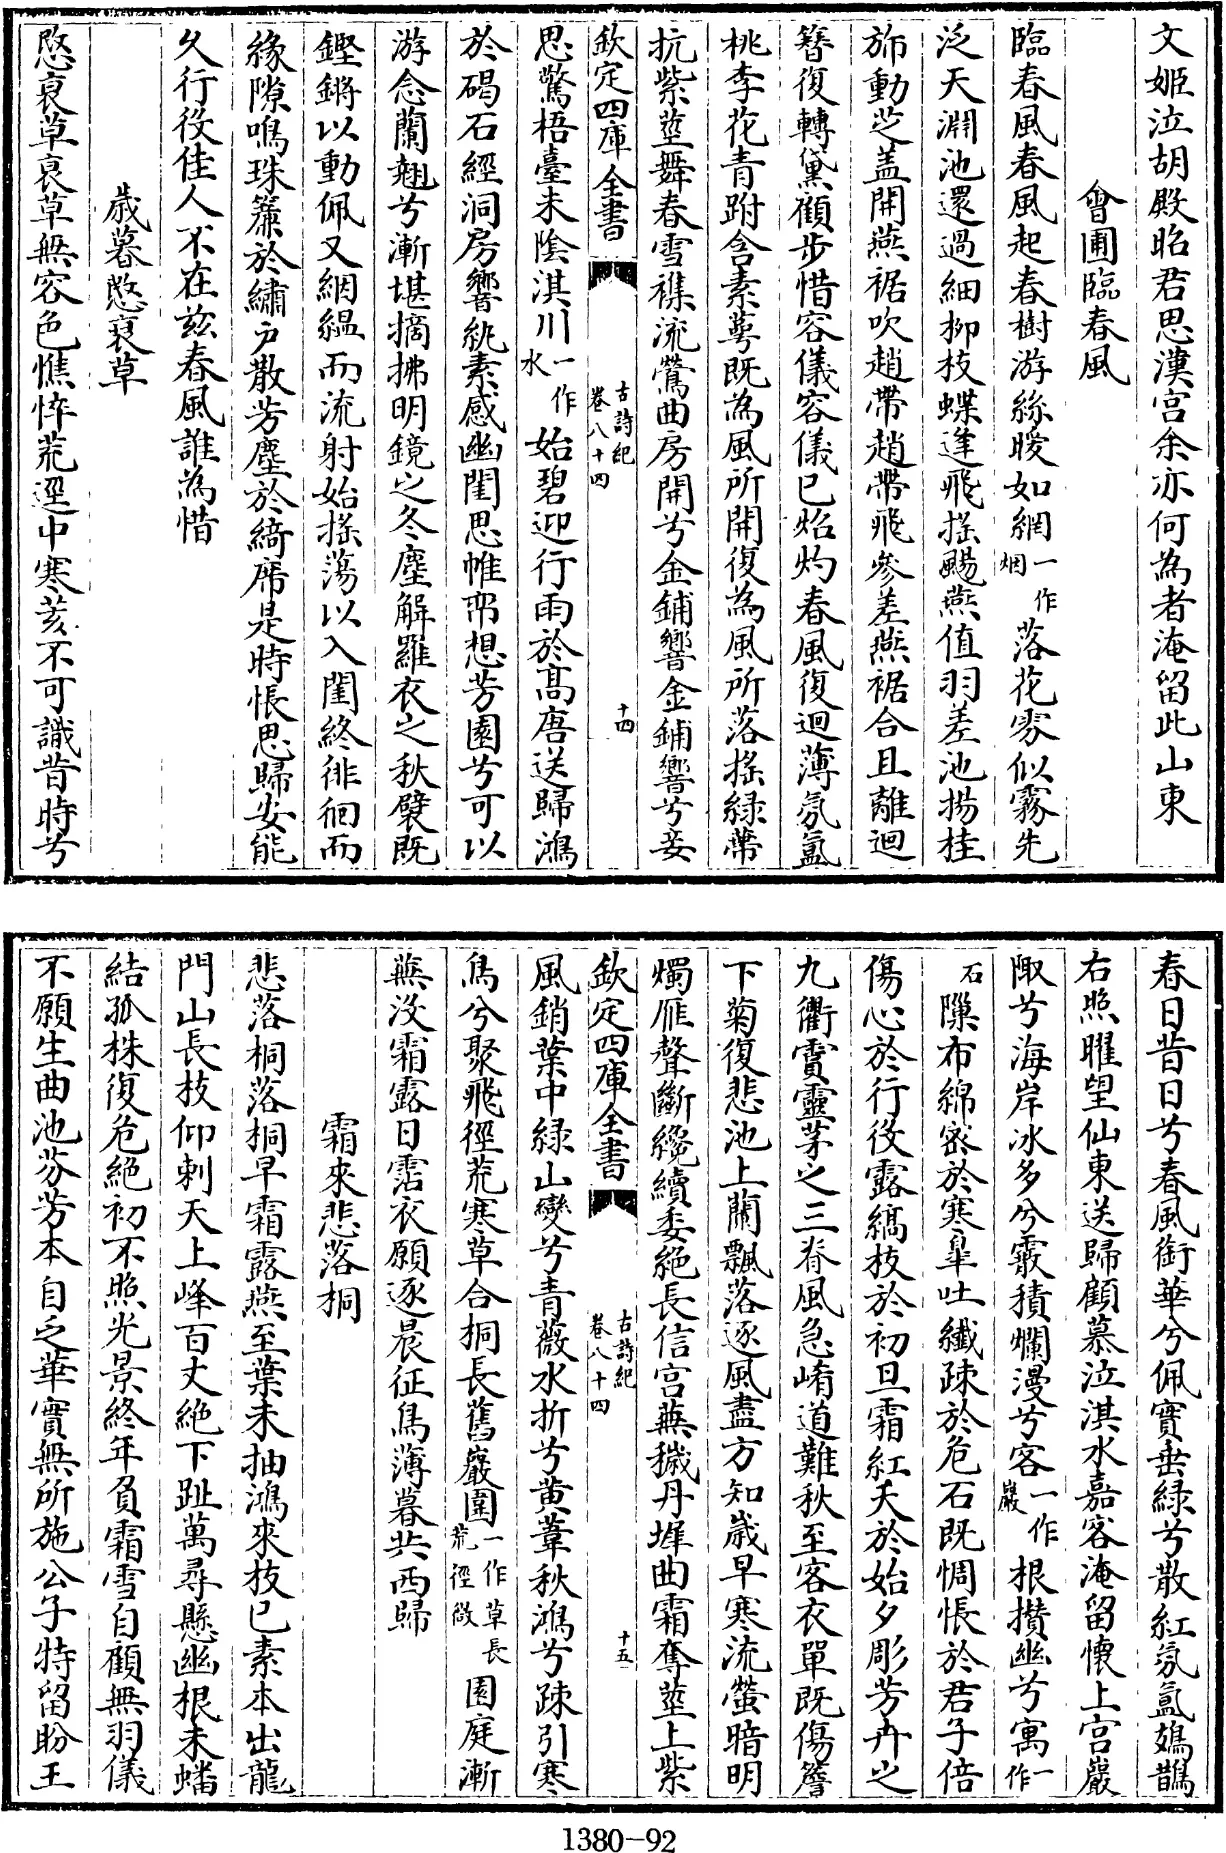 文姬泣胡殿昭君思漢宫余亦何為者淹留此山東
㑹圃臨春風
臨春風春風起春樹游絲曖如網一作烟落花雰似霧先
泛天淵池還過細柳枝蝶逢飛揺颺燕值羽差池揚桂
斾動芝盖開燕裾吹趙帶趙帶飛參差燕裾合且離迴
簪復轉黛顧步惜容儀容儀已炤灼春風復迴薄氛氲
桃李花青跗含素蕚既為風所開復為風所落揺緑蔕
抗紫莖舞春雪襍流鶯曲房開兮金鋪響金鋪響兮妾
欽定四庫全書
古詩紀
卷八十四
十四
思驚梧臺未陰淇川一作水始碧迎行雨於髙唐送歸鴻
於碣石經洞房響紈素感幽閨思帷帟想芳園兮可以
游念蘭翹兮漸堪摘拂明鏡之冬塵解羅衣之秋襞既
鏗鏘以動佩又絪緼而流射始揺蕩以入閨終徘徊而
緣隙鳴珠簾於繡户散芳塵於綺席是時悵思歸安能
乆行役佳人不在兹春風誰為惜
歳暮愍衰草
愍衰草衰草無容色憔悴荒逕中寒荄不可識昔時兮
春日昔日兮春風銜華兮佩實垂緑兮散紅氛氲鳷鵲
右照曜望仙東送歸顧慕泣淇水嘉客淹留懷上宫巖
陬兮海岸冰多兮霰積爛漫兮客一作巖根攅幽兮寓一作
石隟布綿宻於寒臯吐纖疎於危石既惆悵於君子倍
傷心於行役露縞枝於初旦霜紅天於始夕彫芳卉之
九衢霣靈茅之三脊風急崤道難秋至客衣單既傷簷
下菊復悲池上蘭飄落逐風盡方知歳早寒流螢暗明
燭雁聲斷纔續委絶長信宫蕪穢丹墀曲霜奪莖上紫
欽定四庫全書
古詩紀
卷八十四
十五
風銷葉中緑山變兮青薇水折兮黄葦秋鴻兮疎引寒
鳥兮聚飛徑荒寒草合桐長舊巖圍一作草長荒徑微園庭漸
蕪沒霜露日霑衣願逐晨征鳥薄暮共西歸
霜來悲落桐
悲落桐落桐早霜露燕至葉未抽鴻來枝已素本出龍
門山長枝仰刺天上峰百丈絶下趾萬尋懸幽根未蟠
結孤株復危絶初不照光景終年負霜雪自顧無羽儀
不願生曲池芬芳本自乏華實無所施公子特留盼王
1380-92